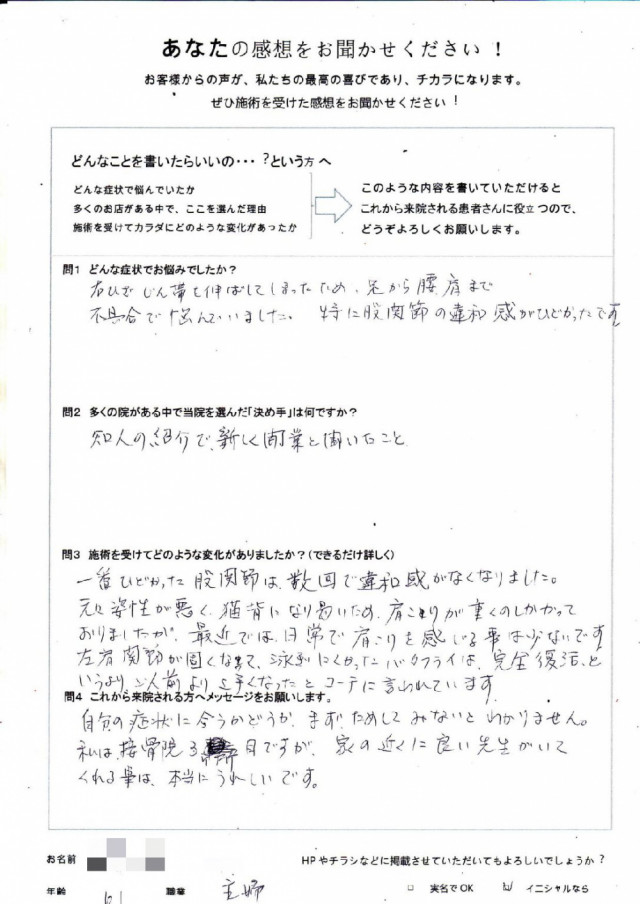 あなたの感想をお聞かせください！
お客様からの声が、私たちの最高の喜びであり、チカラになります。
ぜひ施術を受けた感想をお聞かせください！
どんなことを書いたらいいの・・・？という方へ
どんな症状で悩んでいたか
多くのお店がある中で、ここを選んだ理由
施術を受けてカラダにどのような変化があったか
このような内容を書いていただけると
これから来院される患者さんに役立つので、
どうぞよろしくお願いします。
問1 どんな症状でお悩みでしたか？
右ひざじん帯を伸ばしてしまったため、足から腰肩まで
不具合で悩んでいました。 特に股関節の違和感がひどかったです
問2 多くの院がある中で当院を選んだ「決め手」は何ですか？
知人の紹介で、新しく開業と聞いたこと
問3 施術を受けてどのような変化がありましたか？(できるだけ詳しく)
一番ひどかった股関節は、数回で違和感がなくなりました。
元々姿性が悪く、猫背になり易いため、肩こりが重くのしかかって
おりましたが、最近では、日常で肩こりを感じる事は少ないです
左肩関節が固くなって、泳ぎにくかったバタフライは、完全復活、と
いうより 以前より上手くなったとコーチに言われています
問4 これから来院される方へメッセージをお願いします。
自分の症状に合うかどうか、まず、ためしてみないとわかりません。
私は、接骨院3 目ですが、家の近くに良い先生がいて
くれる事は、本当にうれしいです。
お名前
HPやチラシなどに掲載させていただいてもよろしいでしょうか？
年齢 61 職業 主婦 □ 実名でOK ☑ イニシャルなら